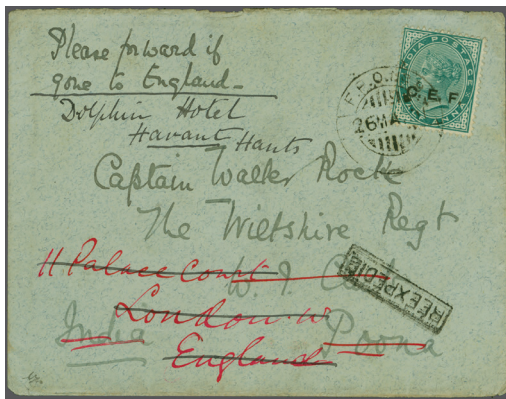 Please forward if
gone to England
Dolphin Hotel
Havant Hants
INDIA POSTAGE
C.E.F
ANNA
F.P.O.
26 MA
Captain Walter Rock
The Wiltshire Regt
11 Palace Court
W. I.
REEXPEDIE
London W.
India Poona
England